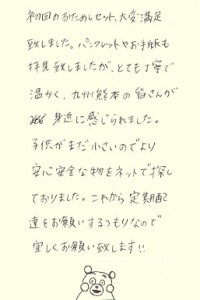 初回のおためしセット、大変満足
致しました。パンフレットやお手紙も
拝見致しましたが、とても丁寧で
温かく、九州熊本の皆さんが
身近に感じられました。
子供がまだ小さいのでより
安心安全な物をネットで探し
ておりました。これから定期配
達をお願いするつもりなので
宜しくお願い致します!!